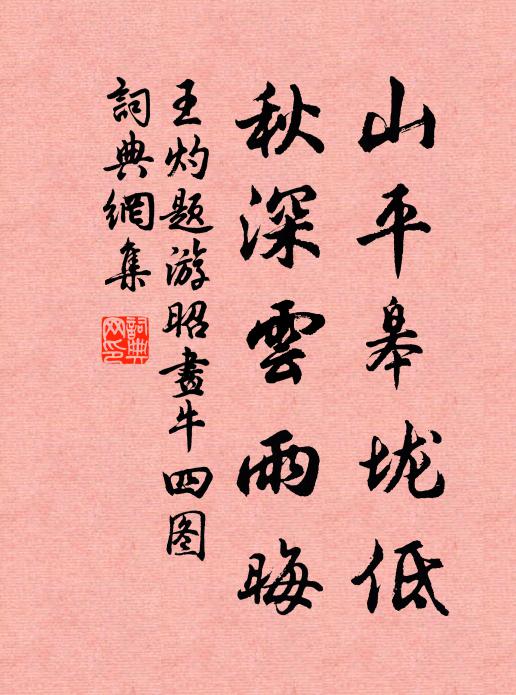 山平皋垅低
秋深雲雨晦
王灼题游昭畫牛四图
詞典網集
詞典網印